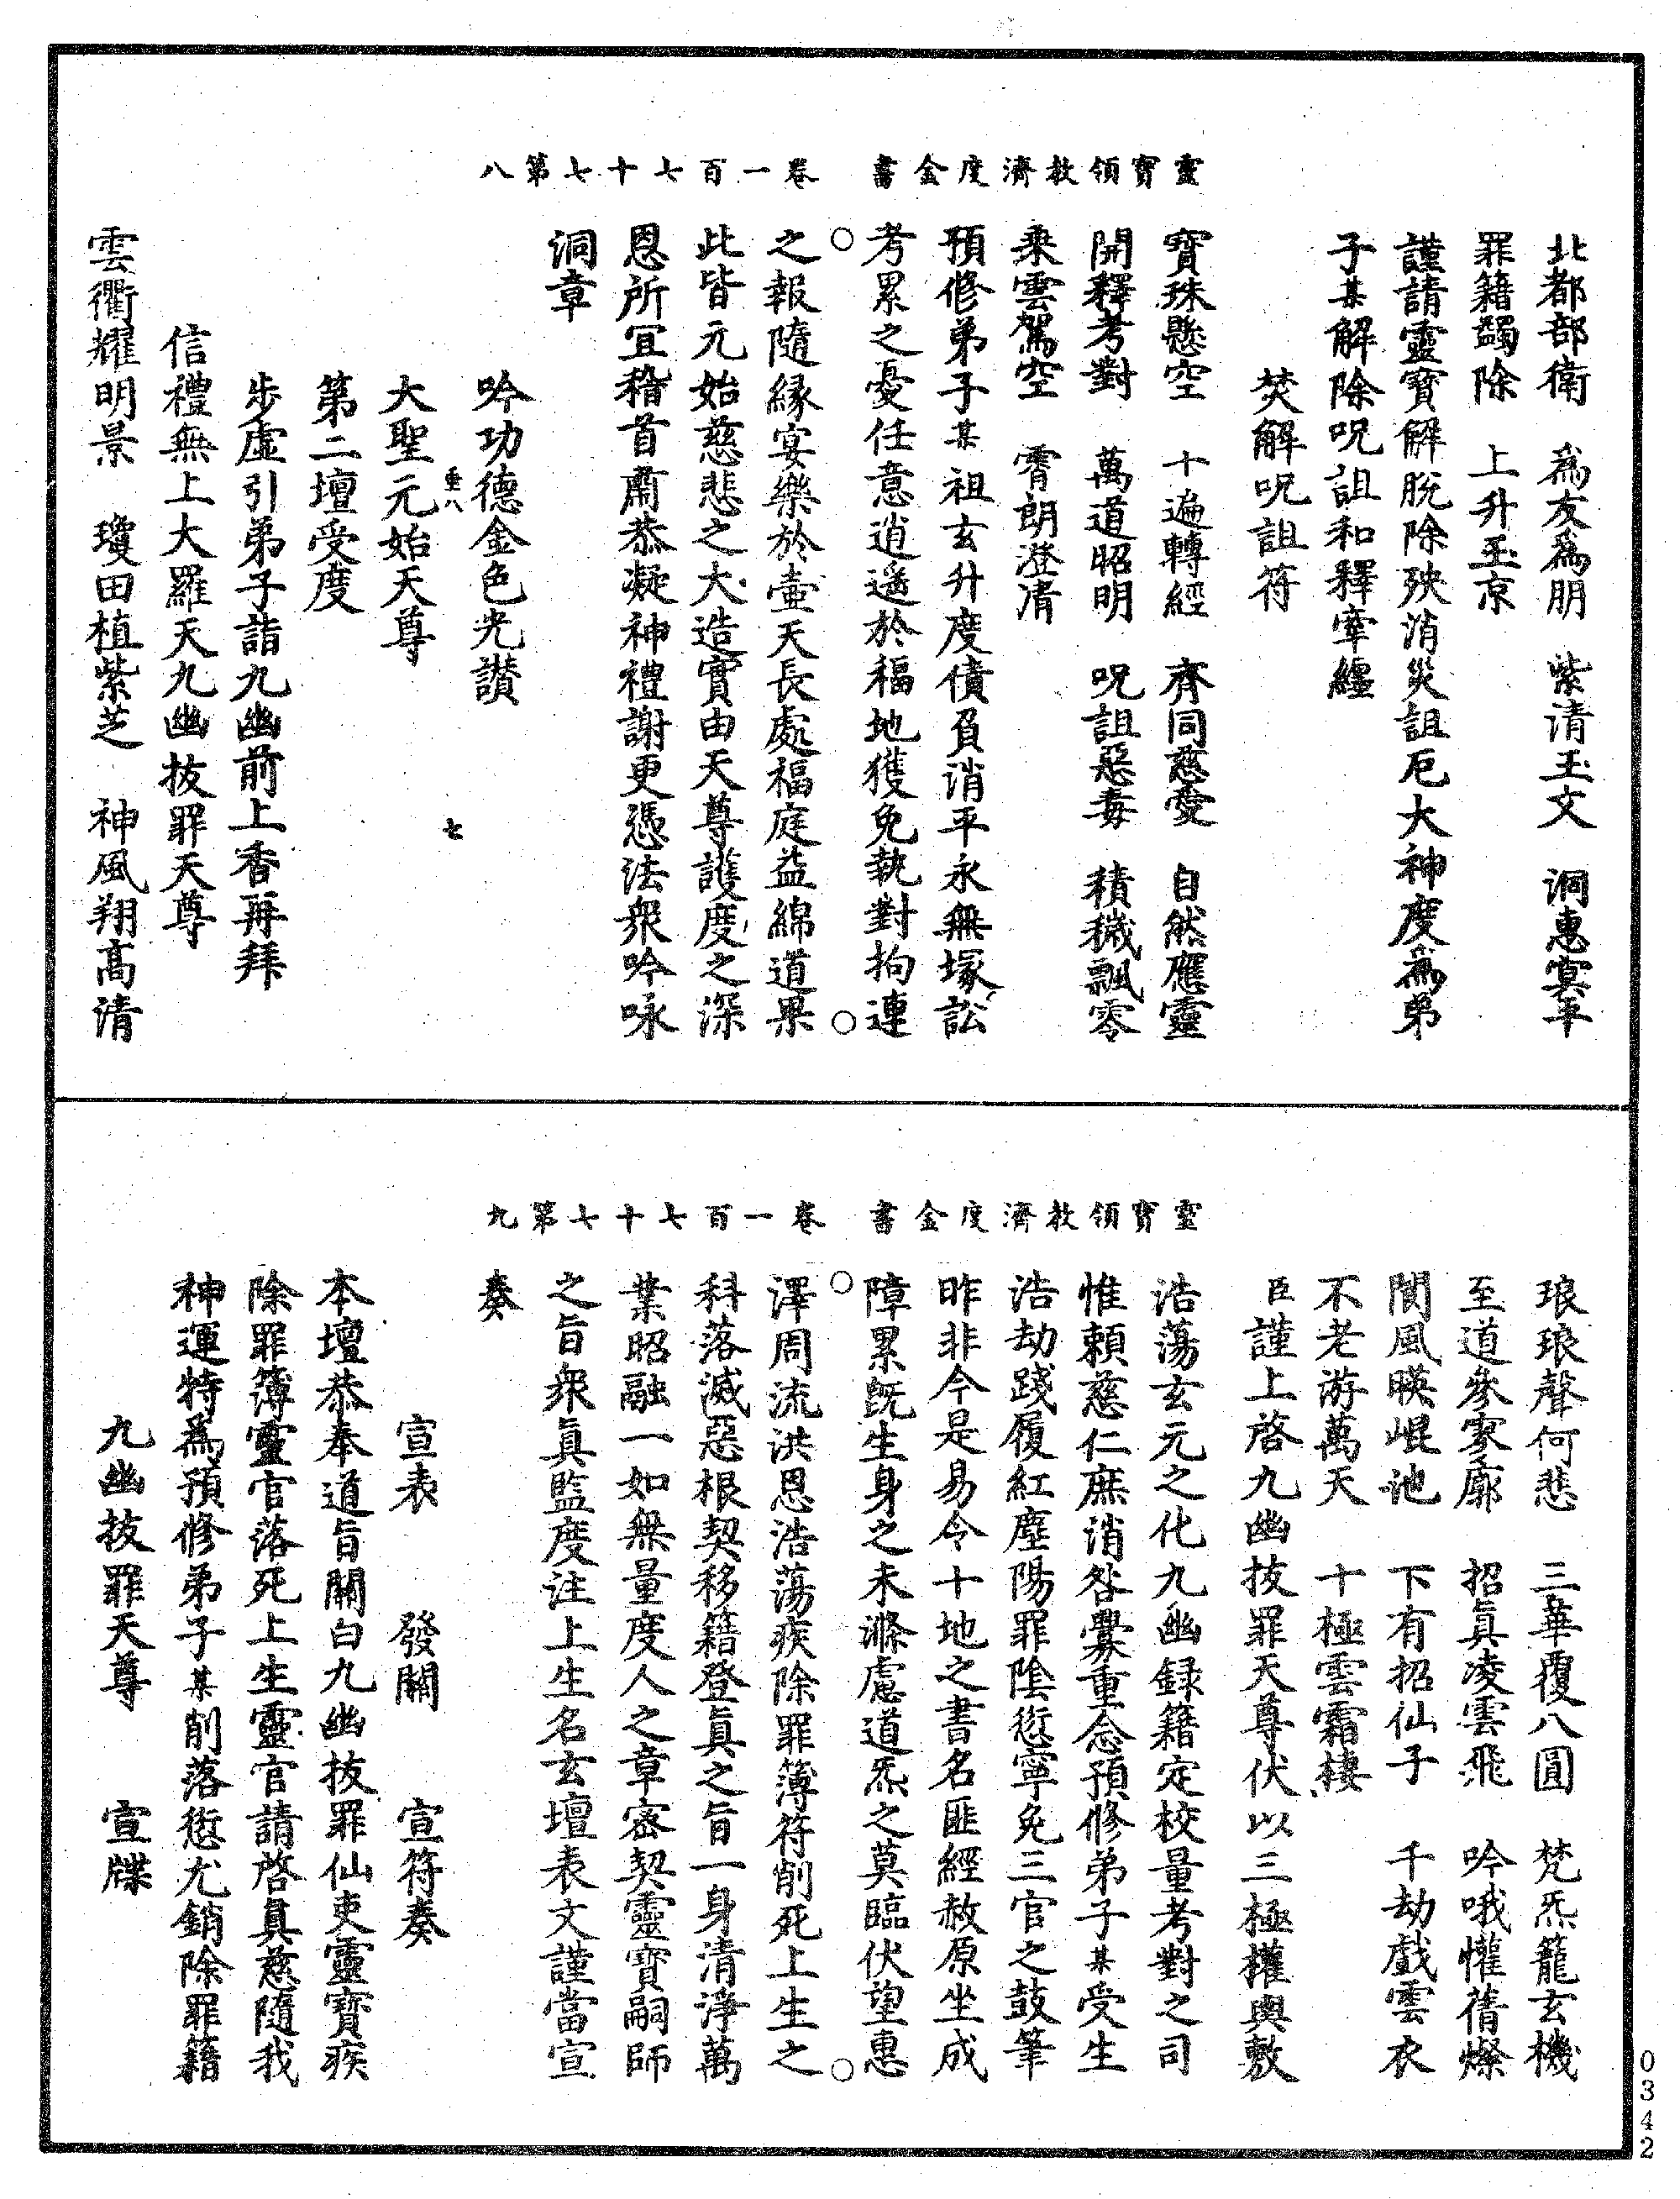 靈寶領教濟度金書　卷一百七十七第八
北都部衛　爲友爲朋　紫清玉文　洞惠寞平
罪籍蠲除　上升玉京
謹請靈寶解脫除殃消災詛厄大神度爲弟
子某解除呪詛和釋牽纏
焚解呪詛符
寶珠懸空　十遍轉經　齊同慈愛　自然應靈
開釋考對　萬道昭明　呪詛惡毒　積穢飄零
乗雲駕空　霄朗澄清
預修弟子某祖玄升度債負消平永無塚訟
考累之憂任意逍遙於福地獲免執對拘連
之報隨緣宴樂於壺天長處福庭益綿道果
此皆元始慈悲之大造實由天尊護度之深
恩所冝稽首肅恭凝神禮謝更憑法衆吟咏
洞章
吟功德金色光讃
垂八　七
大聖元始天尊
第二壇受度
步虛引弟子詣九幽前上香再拜
信禮無上大羅天九幽拔罪天尊
雲衢耀明景　瓊田植紫芝　神風翔高清
靈寶領教濟度金書　卷一百七十七第九
琅琅聲何悲　三華覆八圓　梵炁籠玄機
至道參寥廓　招眞凌雲飛　吟哦懽蒨燦
閬風暎崐池　下有招仙子　千劫戲雲衣
不老游萬天　十極雲霜棲
臣謹上啓九幽拔罪天尊伏以三極權輿敷
浩蕩玄元之化九幽録籍定校量考對之司
惟賴慈仁庶消咎舋重念預修弟子某受生
浩劫踐履紅塵陽罪隂愆寧免三官之鼓筆
昨非今是易令十地之書名匪經赦原坐成
障累旣生身之未滌慮道炁之莫臨伏望惠
澤周流洪恩浩蕩疾除罪簿符削死上生之
科落滅惡根契移籍登眞之旨一身清淨萬
業昭融一如無量度人之章宻契靈寶嗣師
之旨衆眞監度注上生名玄壇表文謹當宣
奏
宣表　發關　宣符奏
本壇恭奉道旨關白九幽拔罪仙吏靈寶疾
除罪簿靈官落死上生靈官請啓眞慈隨我
神運特爲預修弟子某削落愆尤銷除罪籍
九幽拔罪天尊　宣牒
0342